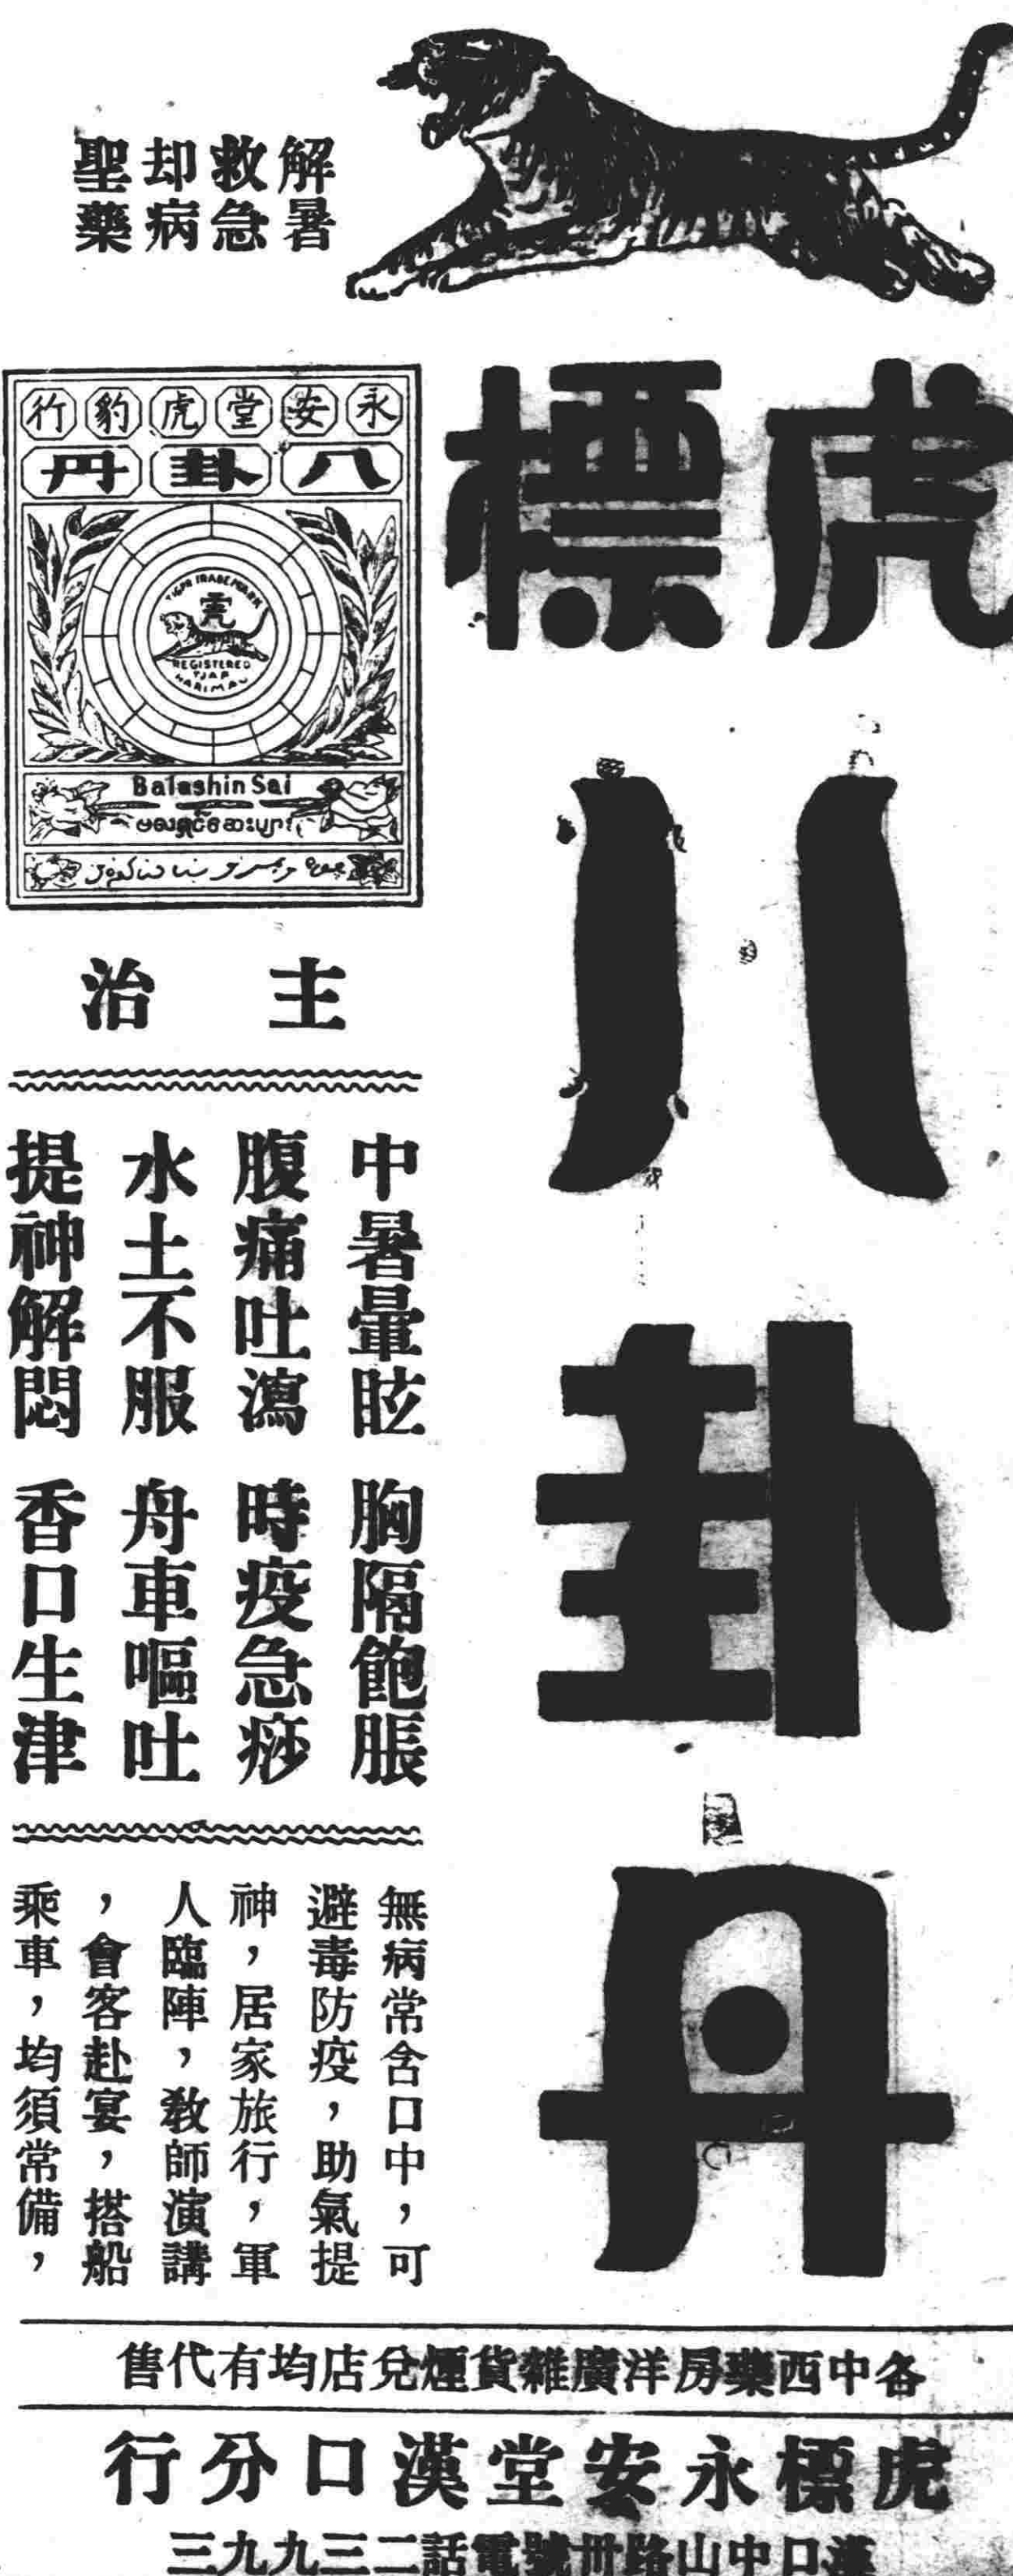 虎標
八卦丹
解暑
救急
却病
聖藥
永安堂虎豹行
八卦丹
TIGER TRADE MARK
虎
REGISTERED
TJAP
HARIMAU
Balashin Sai
主治
中暑暈眩 胸隔飽脹
腹痛吐瀉 時疫急痧
水土不服 舟車嘔吐
提神解悶 香口生津
無病常含口中，可
避毒防疫，助氣提
神，居家旅行，軍
人臨陣，教師演講
，會客赴宴，搭船
乘車，均須常備，
各中西藥房洋廣雜貨煙兌店均有代售
虎標永安堂漢口分行
漢口中山路卅號電話二三九九三